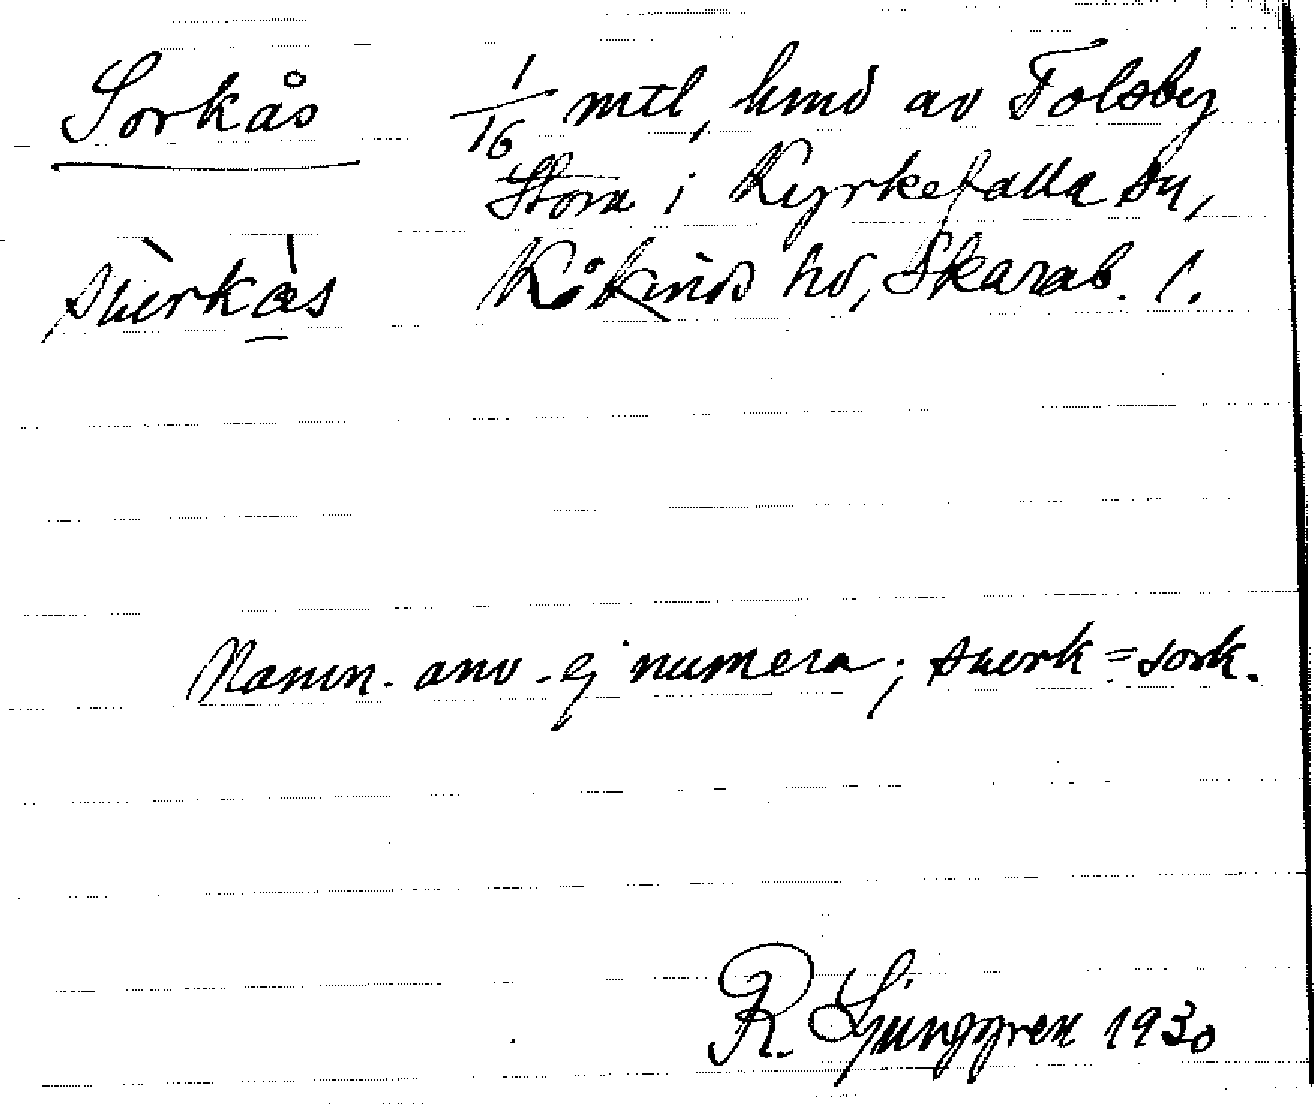 Sorkås 1/16 mtl, hmd av Folsby
Stora i Kyrkefalla sn,
su̇̀erkås Kåkinds hd, Skarab. l.
Namn. anv. ej numera; suerk = sork.
R. Ljunggren 1930